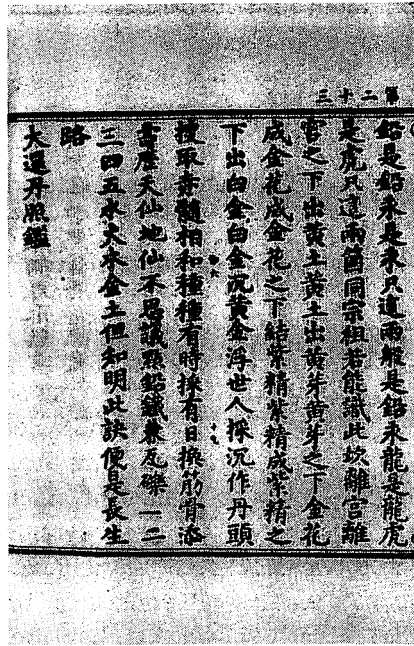 第二十三
鉛是鉛汞是汞只這兩般是鉛汞龍是龍虎
是虎只這兩箇同宗祖若能識此坎離宮離
宮之下出黃土黃土出黃芽黃芽之下金花
成金花成金花之下結紫精紫精成紫精之
下出白金白金沉黃金浮世人採沉作丹頭
搜取赤髓相和種種有時採有日換筋骨添
壽歷天仙地仙不思議點鉛鐵兼瓦礫一二
三四五水火木金土但知明此訣便是長生
路
大還丹照鑑